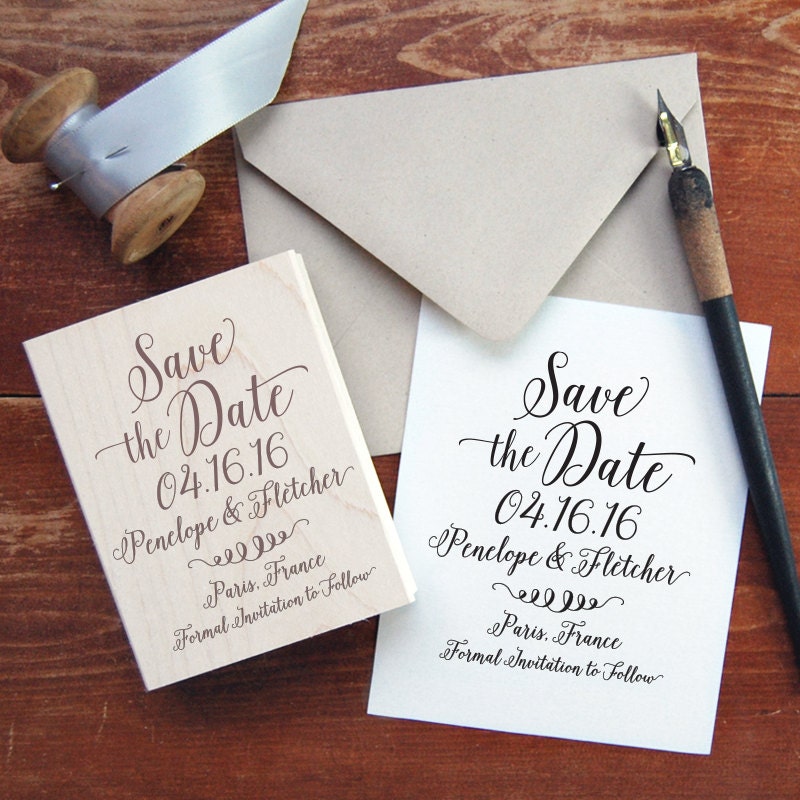 Save
the Date
04.16.16
Penelope & Fletcher
Paris, France
Formal Invitation to Follow
Save
the Date
04.16.16
Penelope & Fletcher
Paris, France
Formal Invitation to Follow